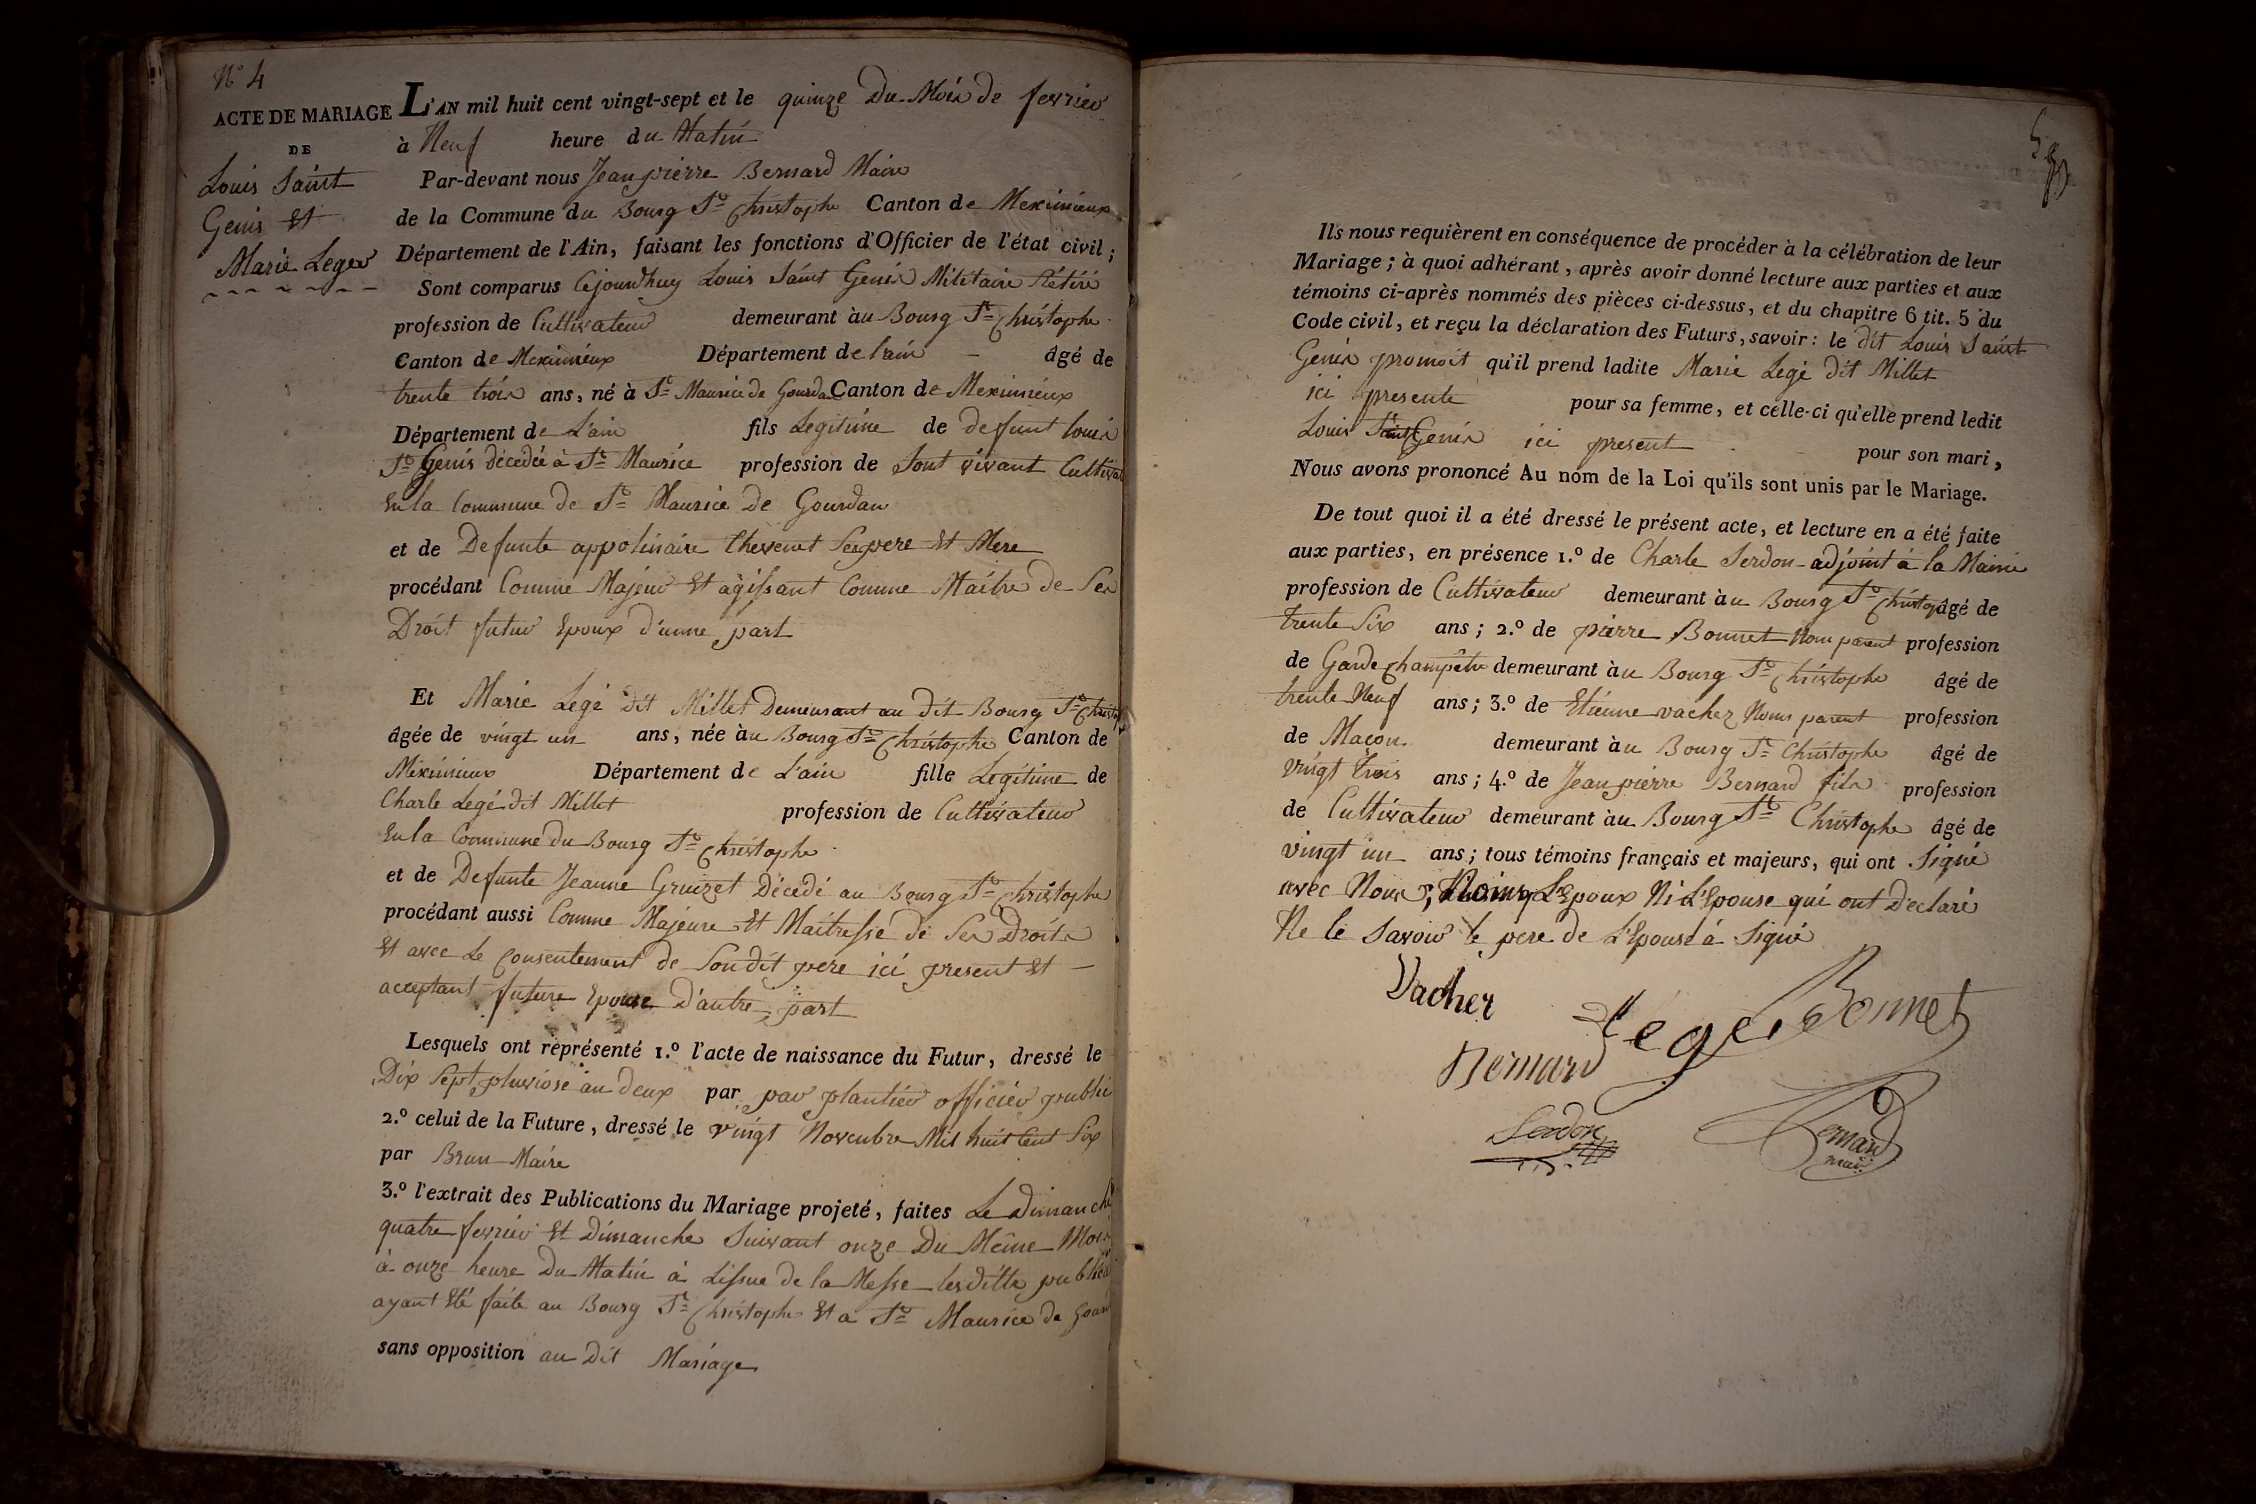 N° 4
ACTE DE MARIAGE
DE
Louis Saint
Genis Et
Marie Leger
L'AN mil huit cent vingt-sept et le quinze Du Mois de fevrier
à Neuf heure du Matin
Par-devant nous Jean pierre Bernard Maire
de la Commune du Bourg St Christophe Canton de Meximieux
Département de l'Ain, faisant les fonctions d'Officier de l'état civil;
Sont comparus Cejourdhuy Louis Saint Genis Militaire Rétiré
profession de Cultivateur demeurant àu Bourg St Christophe
Canton de Meximieux Département de lain âgé de
trente trois ans, né à St Maurice de Gourdan Canton de Meximieux
Département de L'ain fils Legitime de defunt louis
St Genis décedée à St Maurice profession de Sont vivant Cultivat
En la Commune de St Maurice de Gourdan
et de Defunte appolinaire Chevenet Ses pere Et Mere
procédant Comme Majeur Et agissant Comme Maitre de Ses
Droit futur Epoux d'une part
Et Marie Legé dit Millet Demeurant au dit Bourg St Christop
âgée de vingt un ans, née àu Bourg St Christophe Canton de
Meximieux Département de L'ain fille Legitime de
Charle Legé dit Millet profession de Cultivateur
En la Commune du Bourg St Christophe
et de Defunte Jeanne Gruizet Décedé au Bourg St Christophe
procédant aussi Comme Majeure Et Maitresse de Ses Droits
Et avec Le Consentement de Son dit pere ici present Et
acceptant future Epouse D'autre part
Lesquels ont représenté 1.º l'acte de naissance du Futur, dressé le
Dix Sept pluviose an deux par par plantier officier publi
2.º celui de la Future, dressé le vingt Novembre Mil huit Cent Six
par Brun Maire
3.º l'extrait des Publications du Mariage projeté, faites Le Dimanche
quatre fevrier Et Dimanche Suivant onze Du Même Mois
à onze heure Du Matin à Lissue de la Messe lesditte publica
ayant Eté faite au Bourg St Christophe Et a St Maurice de Gour
sans opposition au Dit Mariage
Ils nous requièrent en conséquence de procéder à la célébration de leur
Mariage; à quoi adhérant, après avoir donné lecture aux parties et aux
témoins ci-après nommés des pièces ci-dessus, et du chapitre 6 tit. 5 du
Code civil, et reçu la déclaration des Futurs, savoir: le dit Louis Saint
Genis promoit qu'il prend ladite Marie Legé dit Millet
ici presente pour sa femme, et celle-ci qu'elle prend ledit
Louis Saint Genis ici present pour son mari,
Nous avons prononcé Au nom de la Loi qu'ils sont unis par le Mariage.
De tout quoi il a été dressé le présent acte, et lecture en a été faite
aux parties, en présence 1.º de Charle Serdon adjoint à la Mairie
profession de Cultivateur demeurant àu Bourg St Christop âgé de
trente Six ans; 2.º de pierre Bonnet Nom parent profession
de Garde Champêtre demeurant àu Bourg St Christophe âgé de
trente Neuf ans; 3.º de Etienne vacher Nom parent profession
de Maçon demeurant àu Bourg St Christophe âgé de
vingt trois ans; 4.º de Jean pierre Bernard fils profession
de Cultivateur demeurant àu Bourg St Christophe âgé de
vingt un ans; tous témoins français et majeurs, qui ont Signé
avec Nous, L'Epoux Ni L'Epouse qui ont Déclaré
Ne le Savoir le pere de L'Epouse à Signé
Vacher
Leger
Bonnet
Bernard
Serdon
Bernard
maire